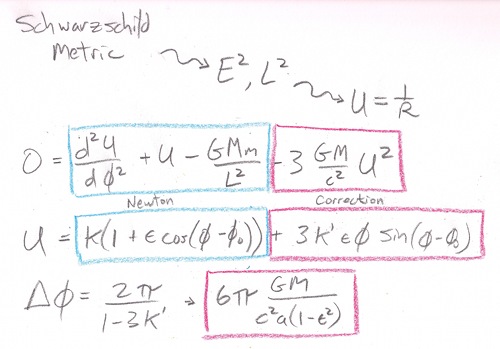 Schwarzschild
Metric
E², L²
U = 1/R
0 = d²U/dφ² + U - GMm/L² - 3 GM/c² U²
Newton
Correction
U = K(1 + ε cos(φ-φ₀)) + 3K' ε φ Sin(φ-φ₀)
Δφ = 2π/(1-3K') → 6π GM/(c²a(1-ε²))